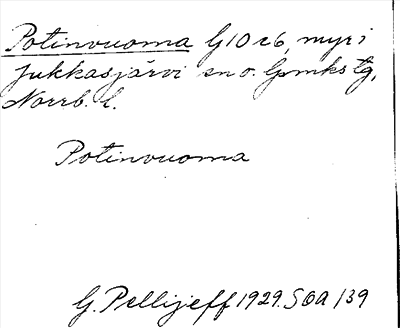 Potinvuoma G10 c6, myr i
Jukkasjärvi sn o. Lpmkstg,
Norrb. l.
Potinvuoma
G. Pellijeff 1929. SOA /39